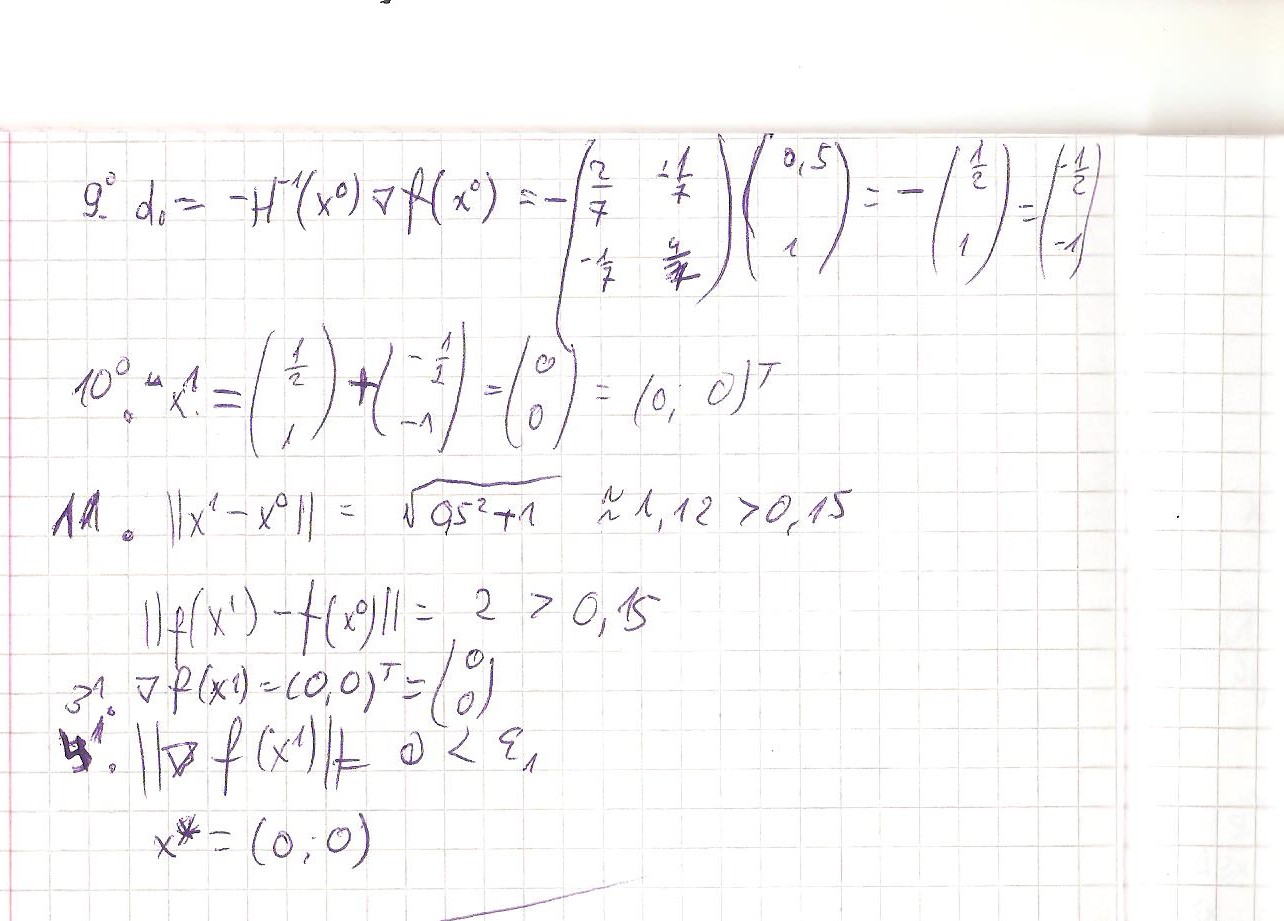 9⁰. d₀ = -H⁻¹(x⁰) ∇ f(x⁰) = -(2/7 -1/7; -1/7 4/7)(0,5; 1) = -(1/2; 1) = (-1/2; -1)
10⁰. x¹ = (1/2; 1) + (-1/2; -1) = (0; 0) = (0; 0)ᵀ
11. ||x¹ - x⁰|| = √(0,5² + 1) ≈ 1,12 > 0,15
||f(x¹) - f(x⁰)|| = 2 > 0,15
3¹. ∇ f(x1) = (0,0)ᵀ = (0; 0)
4¹. ||∇ f(x¹)|| = 0 < ε₁
x* = (0; 0)